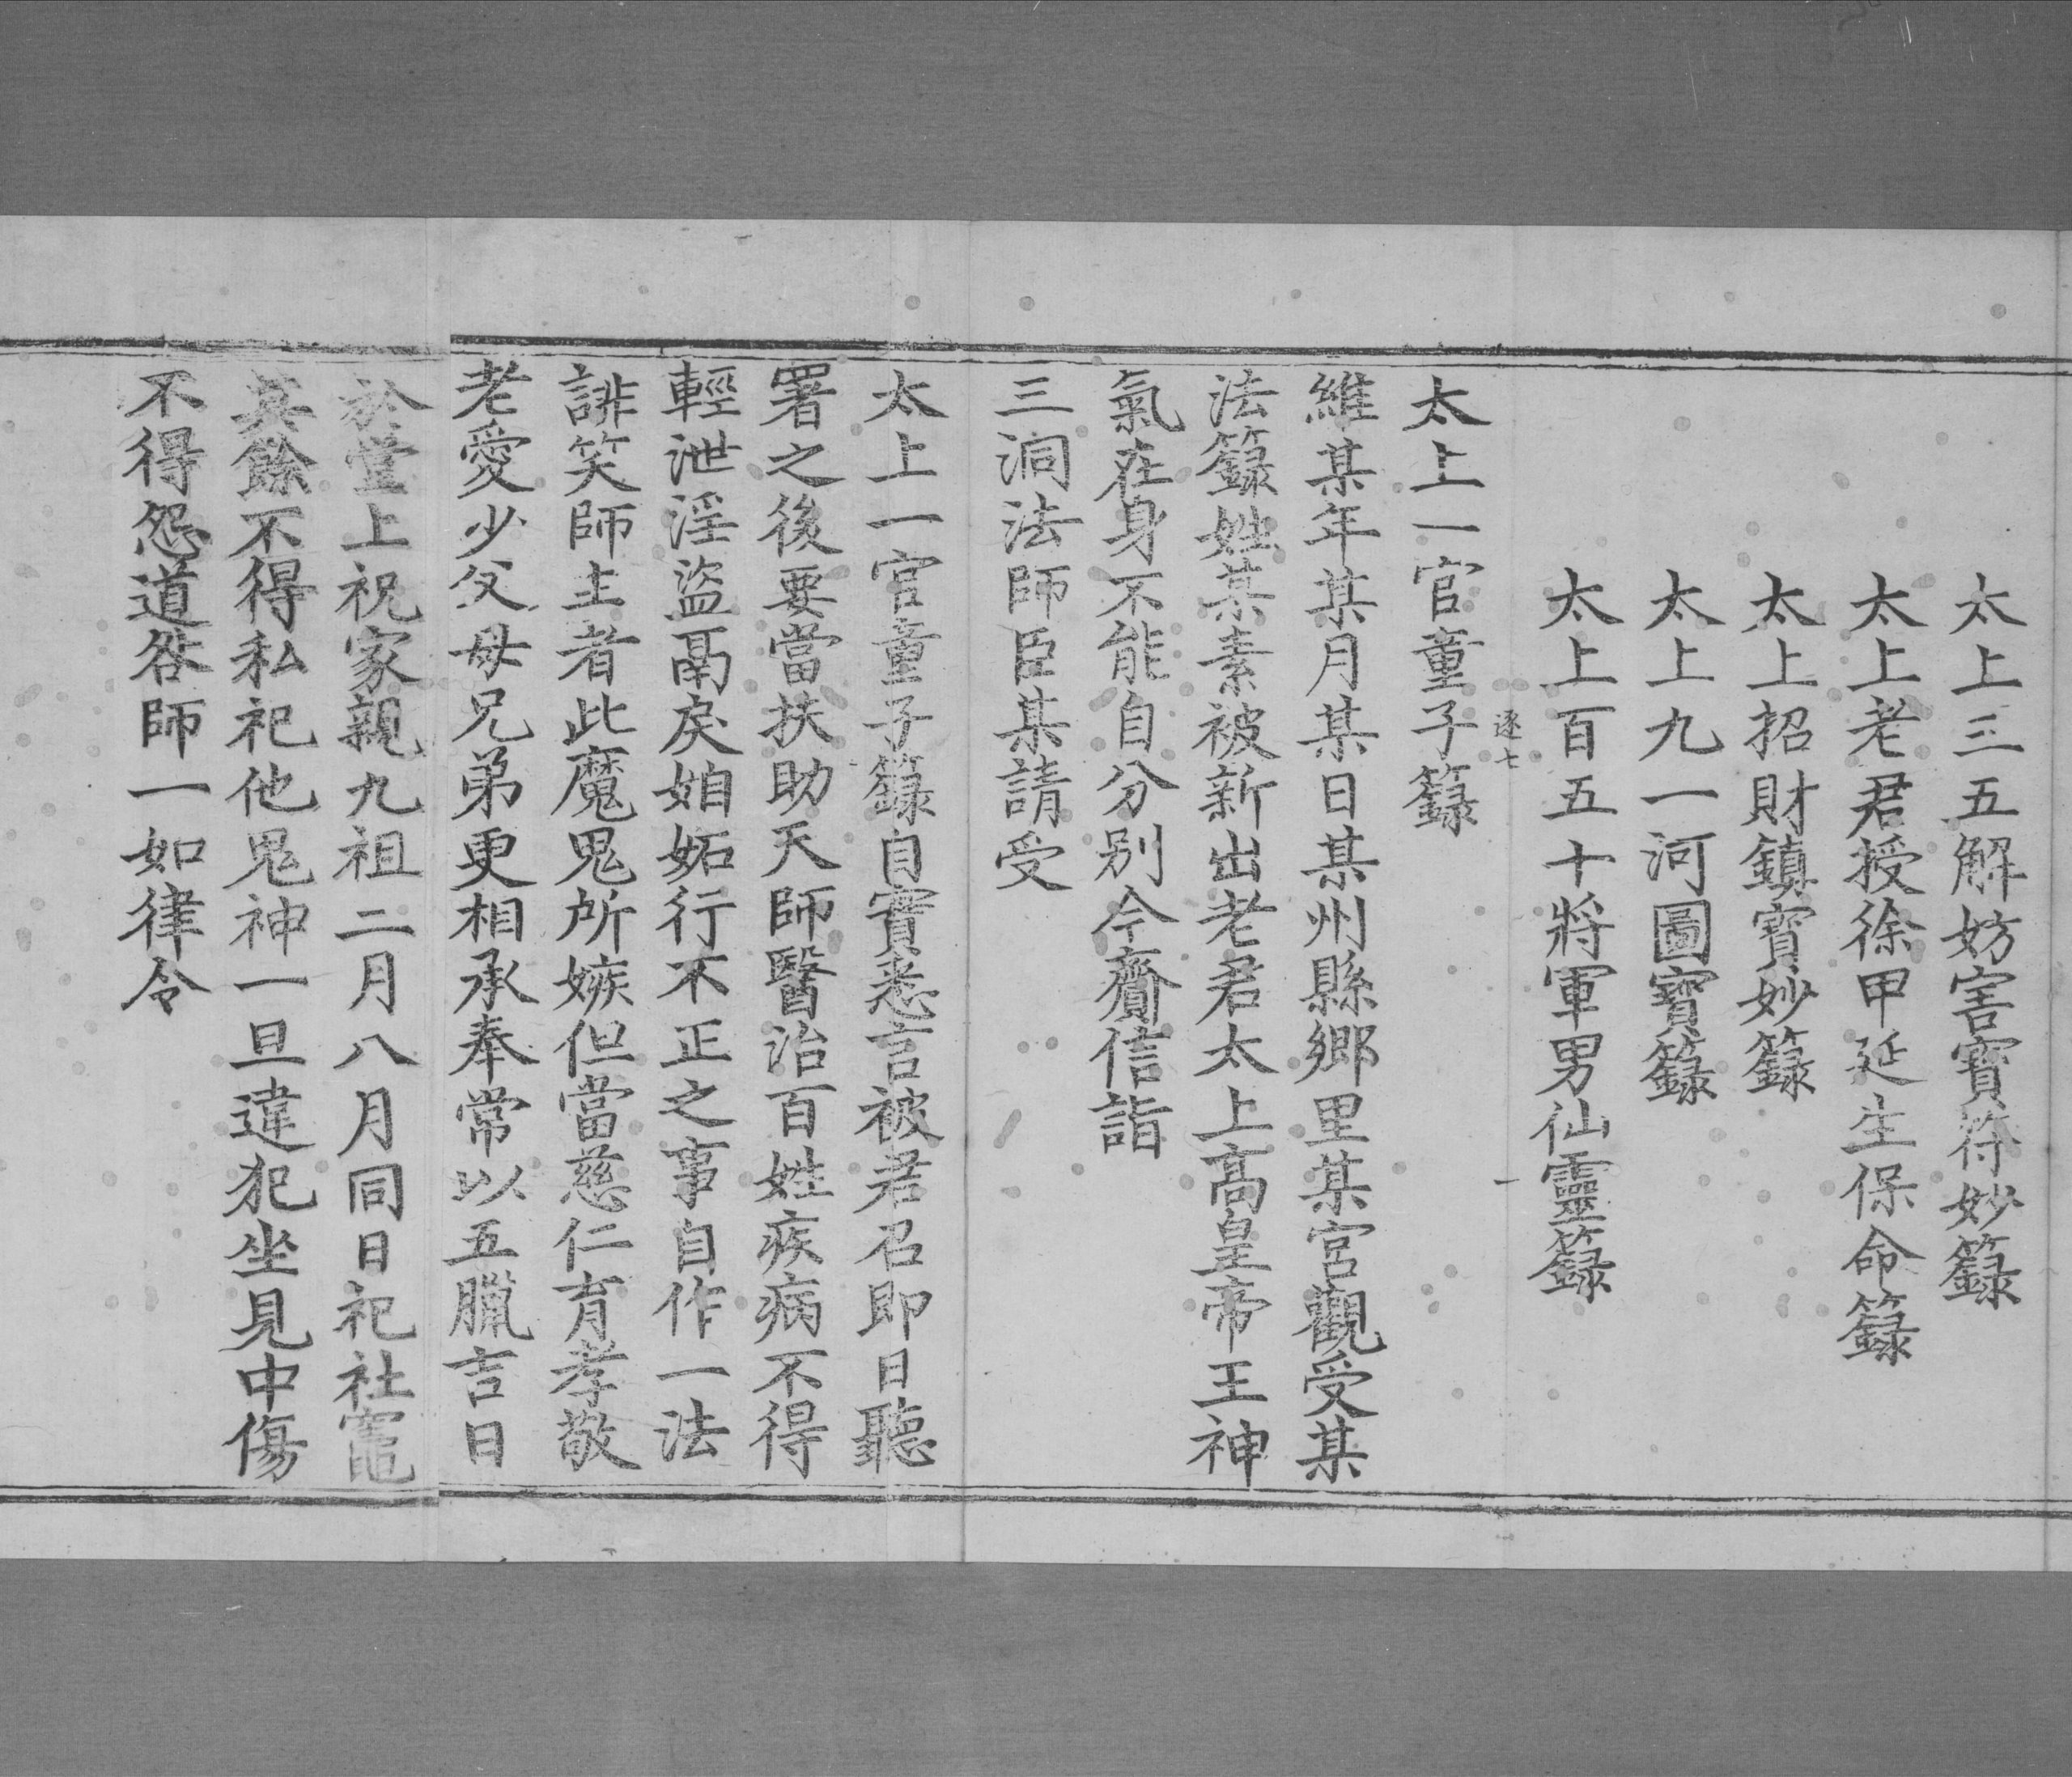 太上三五解妨害寳符妙籙
太上老君授徐甲延生保命籙
太上招財鎮寳妙籙
太上九一河圖寳籙
太上百五十將軍男仙靈籙
逐七
一
太上一官童子籙
維某年某月某日某州縣鄉里某宮觀受某
法籙姓某素被新出老君太上髙皇帝王神
氣在身不能自分别今齎信詣
三洞法師臣某請受
太上一官童子籙自實悉言被君召即日聽
署之後要當扶助天師醫治百姓疾病不得
輕泄淫盜鬲戾妲妬行不正之事自作一法
誹笑師主者此魔鬼所嫉但當慈仁育孝敬
老愛少父母兄弟更相承奉常以五臘吉日
於堂上祝家親九祖二月八月同日祀社竈
其餘不得私祀他鬼神一旦違犯坐見中傷
不得怨道咎師一如律令